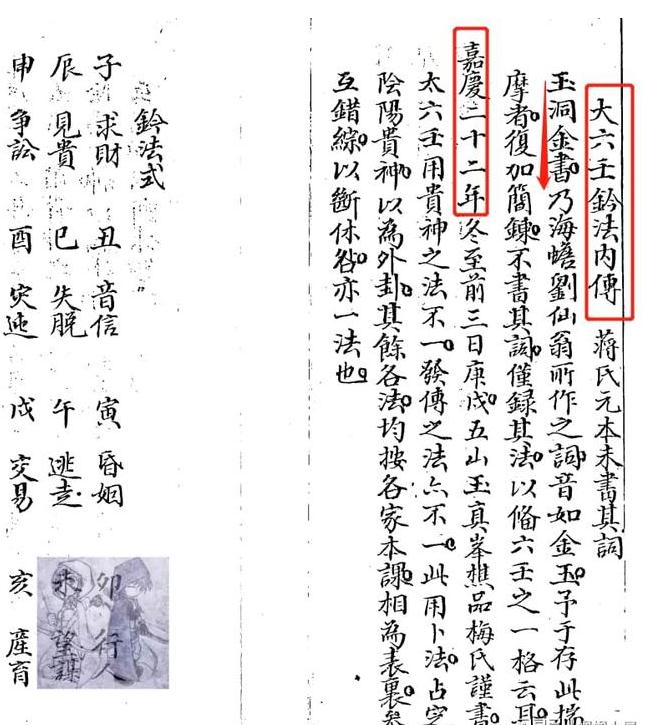 大六壬鈐法内傳 蔣氏元本未書其詞
玉洞金書乃海蟾劉仙翁所作之詞音如金玉予于存此揣
摩者復加簡鍊不書其詞僅録其法以偹六壬之一格云耳
嘉慶二十二年冬至前三日庚戌五山玉真峯樵品梅氏謹書
太六壬用貴神之法不一發傳之法亦不一此用卜法占定
陰陽貴神以為外卦其餘各法均按各家本課相為表裏參
互錯綜以斷休咎亦一法也
鈐法式
子 求財 丑 音信 寅 昏姻 卯 行人
辰 見貴 巳 失脱 午 逃走 未 望謀
申 争訟 酉 灾迍 戌 交易 亥 産育